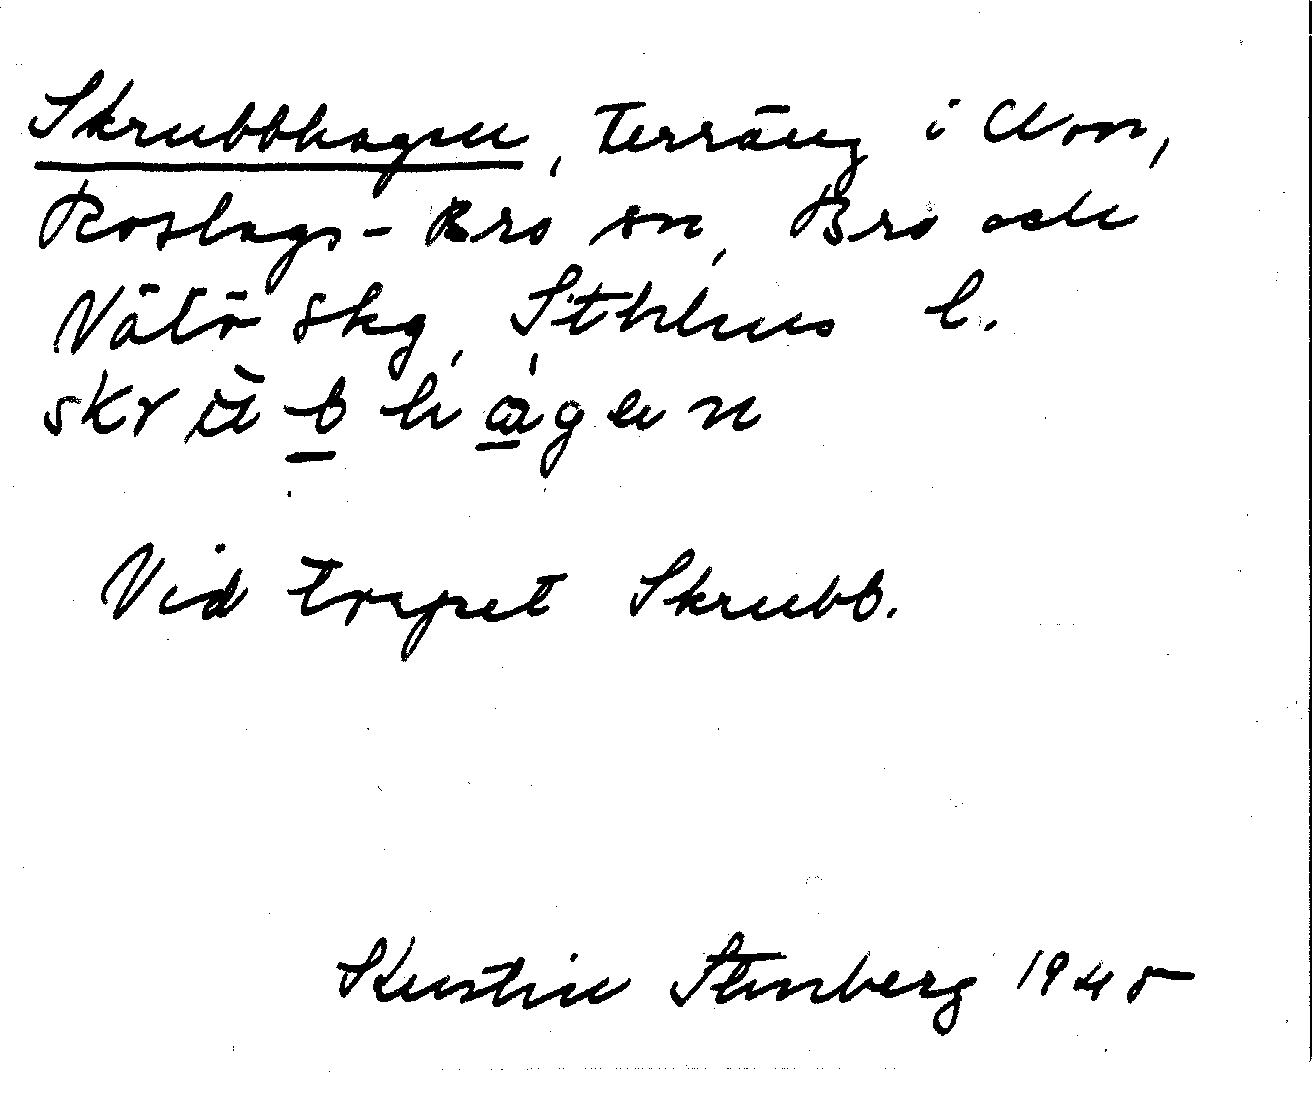 Skrubbhagen, Terräng i Cln,
Roslags-Bro sn, Bro och
Vätö skg, Sthlms l.
skrùb hágen
Vid torpet Skrubb.
Kerstin Stenberg 1945